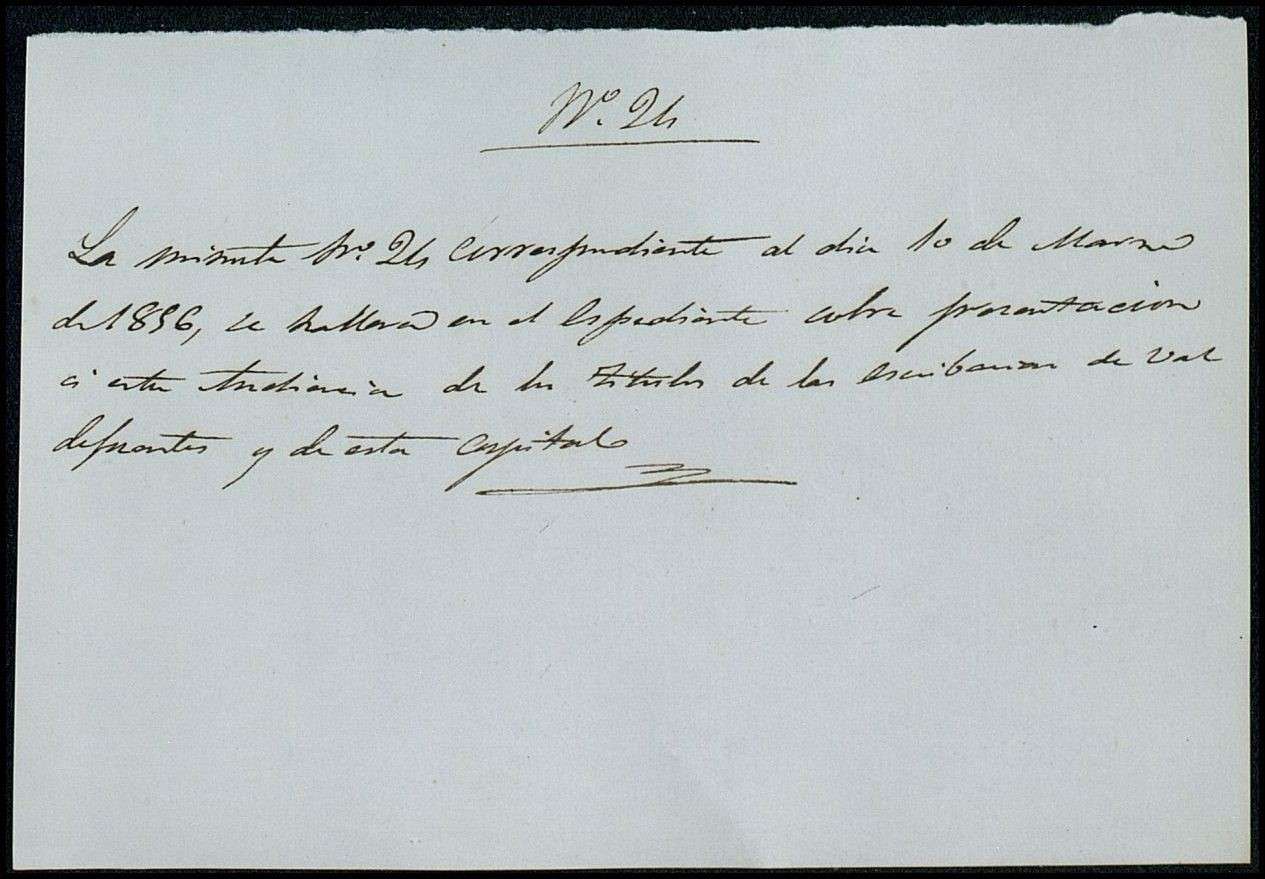 Nº. 24
La minuta Nº. 24 correspondiente al dia 10 de Marzo
de 1856, se hallará en el Espediente sobre presentacion
á esta Audiencia de los Titulos de las escribanias de Val
defuentes y de esta Capital